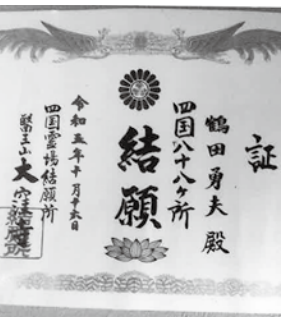 証
鶴田勇夫 殿
四国八十八ヶ所
結願
令和五年十月十六日
四国霊場結願所
醫王山 大窪寺